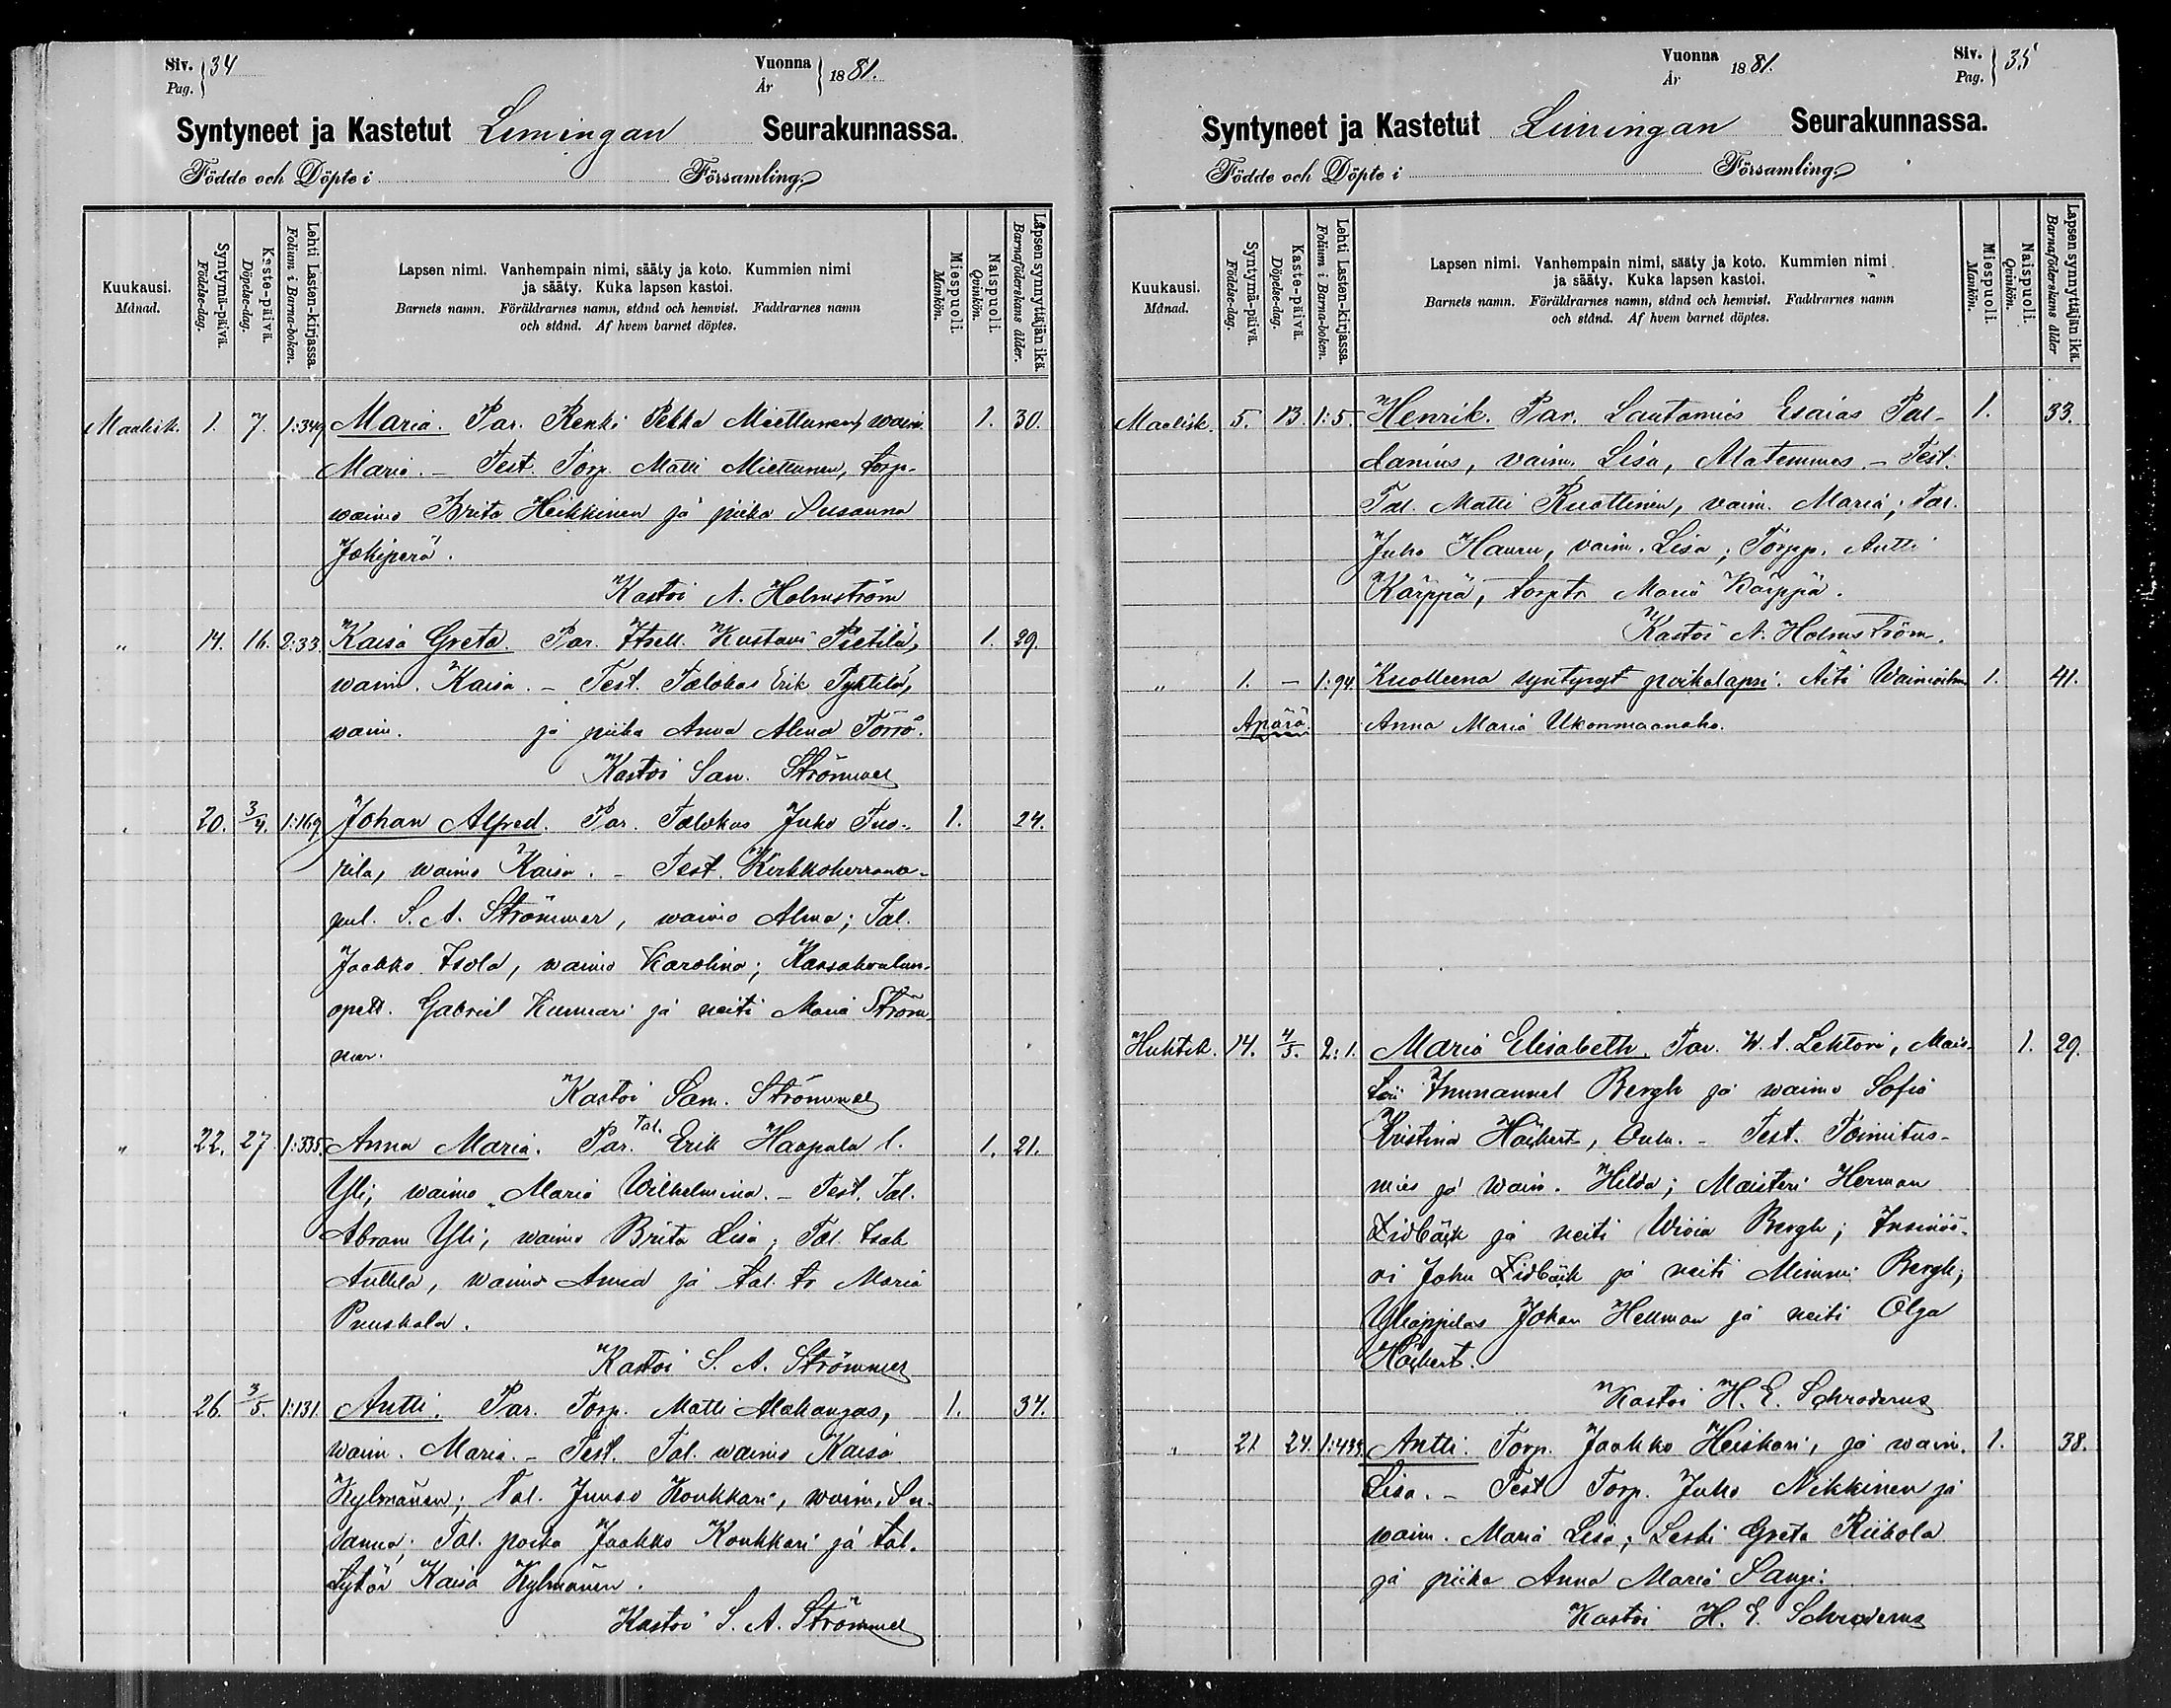 Siv. 34
Pag.
Vuonna 1881.
År
Syntyneet ja Kastetut Limingan Seurakunnassa.
Födde och Döpte i Församling
Kuukausi.
Månad.
Syntymä-päivä.
Födelse-dag.
Kaste-päivä.
Döpelse-dag.
Lehti Lasten-kirjassa.
Folium i Barna-boken.
Lapsen nimi. Vanhempain nimi, sääty ja koto. Kummien nimi
ja sääty. Kuka lapsen kastoi.
Barnets namn. Föräldrarnes namn, stånd och hemvist. Faddrarnes namn
och stånd. Af hvem barnet döptes.
Miespuoli.
Mankön.
Naispuoli.
Qvinkön.
Lapsen synnyttäjän ikä.
Barnaföderskans ålder.
Maalisk. 1. 7. 1:349 Maria. Par. Renki Pekka Miettunen, waim. 1. 30.
Maria. – Test. Torp. Matti Miettunen, torp.
waimo Brita Heikkinen ja piika Susanna
Jokiperä.
Kastoi N. Holmström
" 14. 16. 2:33. Kaisa Greta. Par. Itsell. Kustavi Pietilä, 1. 29.
waim. Kaisa. – Test. Talokas Erik Pyhtilä,
waim. ja piika Anna Alma Törrö.
Kastoi Sam. Strömmer
" 20. 3/4. 1:169 Johan Alfred. Par. Talokas Juho Tuo- 1. 24.
rila, waimo Kaisa. – Test. Kirkkoherrana-
pul. S. A. Strömmer, waimo Alma; Tal.
Jaakko Isola, waimo Karolina; Kansakoulun-
opett. Gabriel Kummari ja neiti Maria Ström-
mer.
Kastoi Sam. Strömmer
" 22. 27 1:335. Anna Maria. Par. Tal. Erik Haapala l. 1. 21.
Yli, waimo Maria Wilhelmina. – Test. Tal.
Abram Yli, waimo Brita Lisa; Tal. Isak
Anttila, waimo Anna ja tal. tr Maria
Puuskala.
Kastoi S. A. Strömmer
" 26. 3/5. 1:131 Antti. Par. Torp. Matti Alakangas, 1. 34.
waim. Maria. – Test. Tal. waimo Kaisa
Kylmänen; Tal. Junso Konkkari, waim. Su-
sanna; Tal. poika Jaakko Konkkari ja tal.
tytär Kaisa Kylmänen.
Kastoi S. A. Strömmer
Vuonna 1881.
År
Siv. 35
Pag.
Syntyneet ja Kastetut Limingan Seurakunnassa.
Födde och Döpte i Församling
Kuukausi.
Månad.
Syntymä-päivä.
Födelse-dag.
Kaste-päivä.
Döpelse-dag.
Lehti Lasten-kirjassa.
Folium i Barna-boken.
Lapsen nimi. Vanhempain nimi, sääty ja koto. Kummien nimi
ja sääty. Kuka lapsen kastoi.
Barnets namn. Föräldrarnes namn, stånd och hemvist. Faddrarnes namn
och stånd. Af hvem barnet döptes.
Miespuoli.
Mankön.
Naispuoli.
Qvinkön.
Lapsen synnyttäjän ikä.
Barnaföderskans ålder
Maalisk. 5. 13. 1:5. Henrik. Par. Lautamies Esaias Pal- 1. 33.
danius, vaim. Lisa, – Test.
Tal. Matti Ruottinen, vaim. Maria; Tal.
Juho Hauru, vaim. Lisa; Torpp. Antti
Kärppä, torp tr Maria Kärppä.
Kastoi N. Holmström.
" 1. – 1:94. Kuolleena syntynyt poikalapsi. Äiti 1. 41.
Äpärä. Anna Maria Ukonmaanaho.
Huhtik. 14. 4/5. 2:1. Maria Elisabeth. Par. W. t. Lehtori, Mais- 1. 29.
teri Immanuel Bergh ja waimo Sofia
Kristina Höckert, Oulu. – Test. Toimitus-
mies ja waim. Hilda; Maisteri Herman
Lidbäck ja neiti Bergh; Insinöö-
ri John Lidbäck ja neiti Mimmi Bergh;
Ylioppilas Johan Hellman ja neiti Olga
Höckert.
Kastoi H. E. Schroderus
" 21 24. 1:433. Antti. Torp. Jaakko Heiskari, ja waim. 1. 38.
Lisa. – Test Torp. Juho Nikkinen ja
waim. Maria Lisa; Leski Greta Riikola
ja piika Anna Maria Sangi.
Kastoi H. E. Schroderus